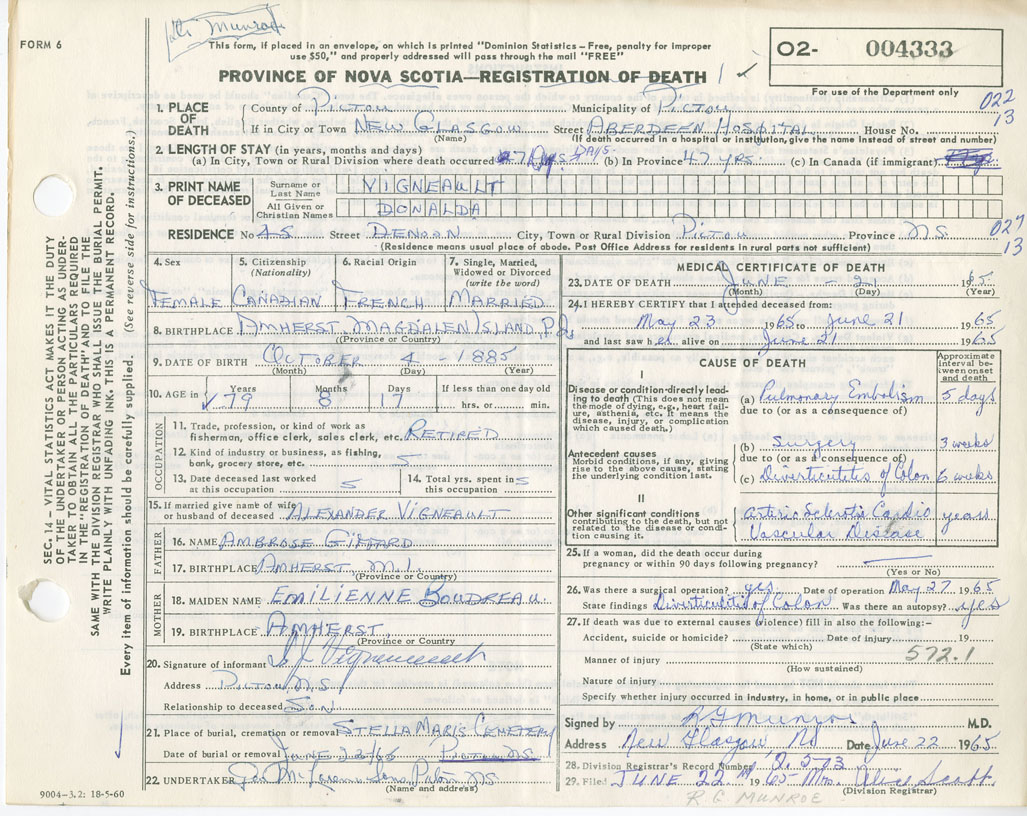 Munroe
FORM 6
This form, if placed in an envelope, on which is printed "Dominion Statistics – Free, penalty for improper
use $50," and properly addressed will pass through the mail "FREE"
PROVINCE OF NOVA SCOTIA—REGISTRATION OF DEATH
02- 004333
For use of the Department only
022
13
1. PLACE OF DEATH
County of PICTOU Municipality of PICTOU
If in City or Town NEW GLASGOW Street ABERDEEN HOSPITAL House No.
(Name) (If death occurred in a hospital or institution, give the name instead of street and number)
2. LENGTH OF STAY (in years, months and days)
(a) In City, Town or Rural Division where death occurred DAYS (b) In Province 47 YRS. (c) In Canada (if immigrant)
3. PRINT NAME OF DECEASED
Surname or Last Name VIGNEAULT
All Given or Christian Names DONALDA
RESIDENCE No 45 Street DENOON City, Town or Rural Division PICTOU Province N.S.
(Residence means usual place of abode. Post Office Address for residents in rural parts not sufficient)
027
13
4. Sex 5. Citizenship (Nationality) 6. Racial Origin 7. Single, Married, Widowed or Divorced (write the word)
FEMALE CANADIAN FRENCH MARRIED
8. BIRTHPLACE AMHERST MAGDALEN ISLAND, P.Q.
(Province or Country)
9. DATE OF BIRTH OCTOBER 4 - 1885
(Month) (Day) (Year)
10. AGE in Years 79 Months 8 Days 17 If less than one day old
hrs. or min.
OCCUPATION
11. Trade, profession, or kind of work as
fisherman, office clerk, sales clerk, etc. RETIRED
12. Kind of industry or business, as fishing,
bank, grocery store, etc.
13. Date deceased last worked
at this occupation
14. Total yrs. spent in
this occupation
15. If married give name of wife
or husband of deceased ALEXANDER VIGNEAULT
FATHER
16. NAME AMBROSE GIFFARD
17. BIRTHPLACE AMHERST, M.I.
(Province or Country)
MOTHER
18. MAIDEN NAME EMILIENNE BOUDREAU
19. BIRTHPLACE AMHERST
(Province or Country)
20. Signature of informant
Address PICTOU, N.S.
Relationship to deceased SON
21. Place of burial, cremation or removal STELLA MARIS CEMETERY
Date of burial or removal JUNE PICTOU N.S.
22. UNDERTAKER
(Name and address)
MEDICAL CERTIFICATE OF DEATH
23. DATE OF DEATH JUNE - 21 1965
(Month) (Day) (Year)
24. I HEREBY CERTIFY that I attended deceased from:
May 23 1965 to June 21 1965
and last saw her alive on June 21 1965
CAUSE OF DEATH
Approximate interval between onset and death
I
Disease or condition directly leading to death (This does not mean the mode of dying, e.g., heart failure, asthenia, etc. It means the disease, injury, or complication which caused death.)
(a) Pulmonary Embolism 5 days
due to (or as a consequence of)
Antecedent causes
Morbid conditions, if any, giving rise to the above cause, stating the underlying condition last.
(b) Surgery 3 weeks
due to (or as a consequence of)
(c) Diverticulitis of Colon 6 weeks
II
Other significant conditions
contributing to the death, but not related to the disease or condition causing it.
Arterio Sclerotic Cardio years
Vascular Disease
25. If a woman, did the death occur during
pregnancy or within 90 days following pregnancy?
(Yes or No)
26. Was there a surgical operation? yes Date of operation May 27 1965
State findings Diverticulitis of Colon Was there an autopsy? yes
27. If death was due to external causes (violence) fill in also the following:–
Accident, suicide or homicide? Date of injury 19
(State which)
572.1
Manner of injury
(How sustained)
Nature of injury
Specify whether injury occurred in industry, in home, or in public place
Signed by M.D.
Address New Glasgow Date June 22 1965
28. Division Registrar's Record Number
29. Filed JUNE 22 1965 Mrs. Alice Scott
(Division Registrar)
R.G. MUNROE
SEC. 14 – VITAL STATISTICS ACT MAKES IT THE DUTY
OF THE UNDERTAKER OR PERSON ACTING AS UNDER-
TAKER TO OBTAIN ALL THE PARTICULARS REQUIRED
IN THE "REGISTRATION OF DEATH" AND TO FILE THE
SAME WITH THE DIVISION REGISTRAR WHO SHALL ISSUE THE BURIAL PERMIT.
WRITE PLAINLY WITH UNFADING INK. THIS IS A PERMANENT RECORD.
Every item of information should be carefully supplied. (See reverse side for instructions.)
9004-3.2: 18-5-60